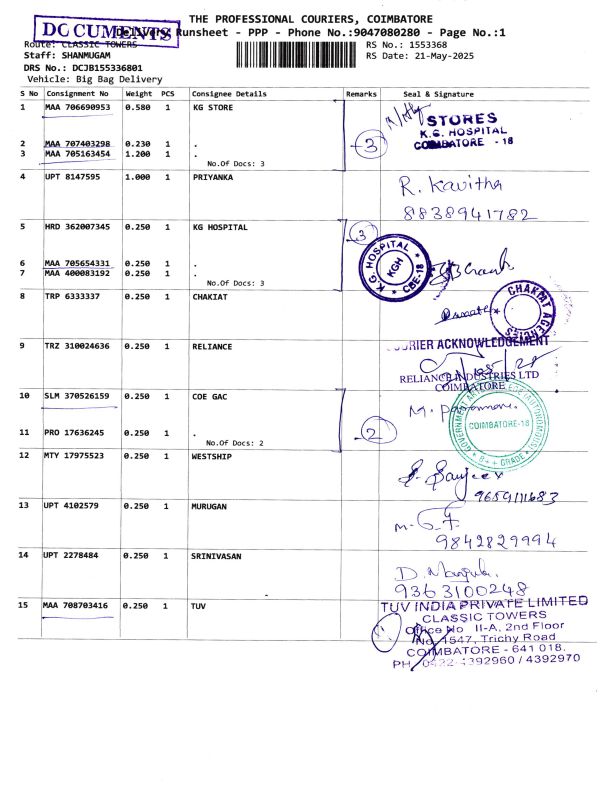 THE PROFESSIONAL COURIERS, COIMBATORE
DOCUMENTS
Delivery Runsheet - PPP - Phone No.:9047080280 - Page No.:1
Route: CLASSIC TOWERS
RS No.: 1553368
Staff: SHANMUGAM
RS Date: 21-May-2025
DRS No.: DCJB155336801
Vehicle: Big Bag Delivery
S No Consignment No Weight PCS Consignee Details Remarks Seal & Signature
1 MAA 706690953 0.580 1 KG STORE
STORES
K.G. HOSPITAL
COIMBATORE - 18
2 MAA 707403298 0.230 1 .
3 MAA 705163454 1.200 1 .
3
No.Of Docs: 3
4 UPT 8147595 1.000 1 PRIYANKA
R. Kavitha
8838941782
5 HRD 362007345 0.250 1 KG HOSPITAL
3
K.G. HOSPITAL
KGH
CBE-18
6 MAA 705654331 0.250 1 .
7 MAA 400083192 0.250 1 .
No.Of Docs: 3
8 TRP 6333337 0.250 1 CHAKIAT
CHAKIAT AGENCIES
9 TRZ 310024636 0.250 1 RELIANCE
COURIER ACKNOWLEDGEMENT
RELIANCE INDUSTRIES LTD
COIMBATORE
10 SLM 370526159 0.250 1 COE GAC
GOVERNMENT ARTS COLLEGE (AUTONOMOUS)
COIMBATORE-18
B++ GRADE
11 PRO 17636245 0.250 1 .
2
No.Of Docs: 2
12 MTY 17975523 0.250 1 WESTSHIP
S. Sanjeev
9659111683
13 UPT 4102579 0.250 1 MURUGAN
9842829994
14 UPT 2278484 0.250 1 SRINIVASAN
9363100248
15 MAA 708703416 0.250 1 TUV
TUV INDIA PRIVATE LIMITED
CLASSIC TOWERS
Office No II-A, 2nd Floor
No. 1547, Trichy Road
COIMBATORE - 641 018.
PH 0422-4392960 / 4392970